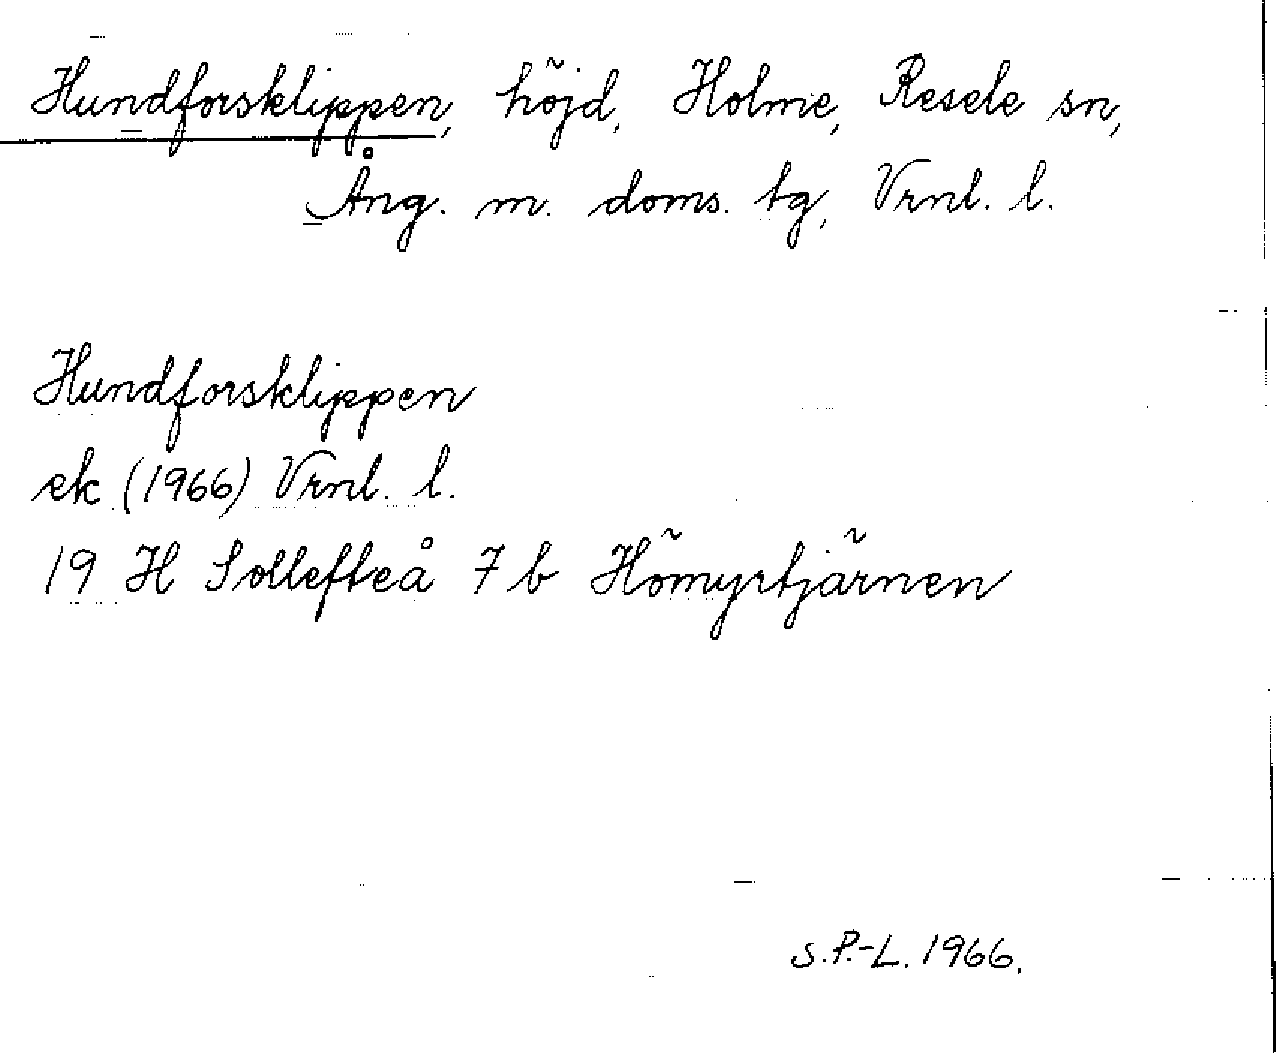 Hundforsklippen, höjd, Holme, Resele sn,
Ång. m. doms. tg, Vrnl. l.
Hundforsklippen
ek (1966) Vrnl. l.
19 H Sollefteå 7 b Hömyrtjärnen
S.P.-L. 1966.